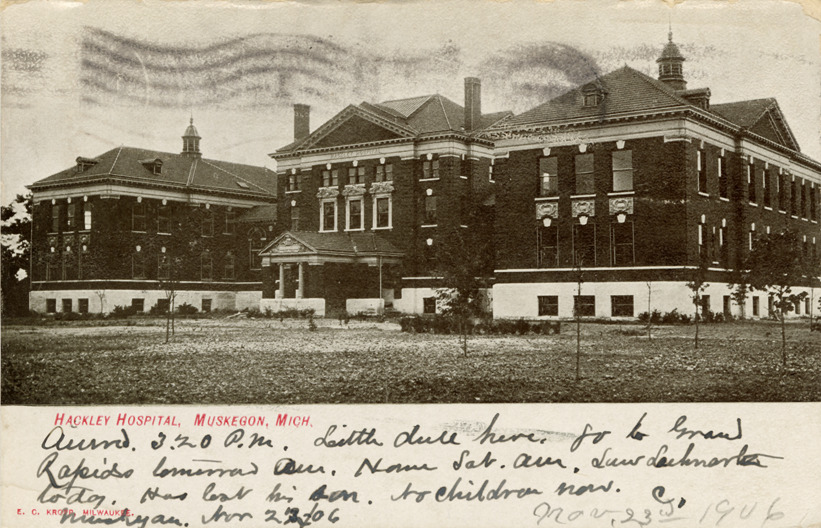 HACKLEY HOSPITAL, MUSKEGON, MICH.
Arrvd. 3.20 P.M. Little dull here. Go to Grand
Rapids tomorrow am. Home Sat. am. Saw
today. Has lost his son. No children now. C.
E. C. KROPP, MILWAUKEE.
Muskegan. Nov 23/06
Nov. 23rd 1906